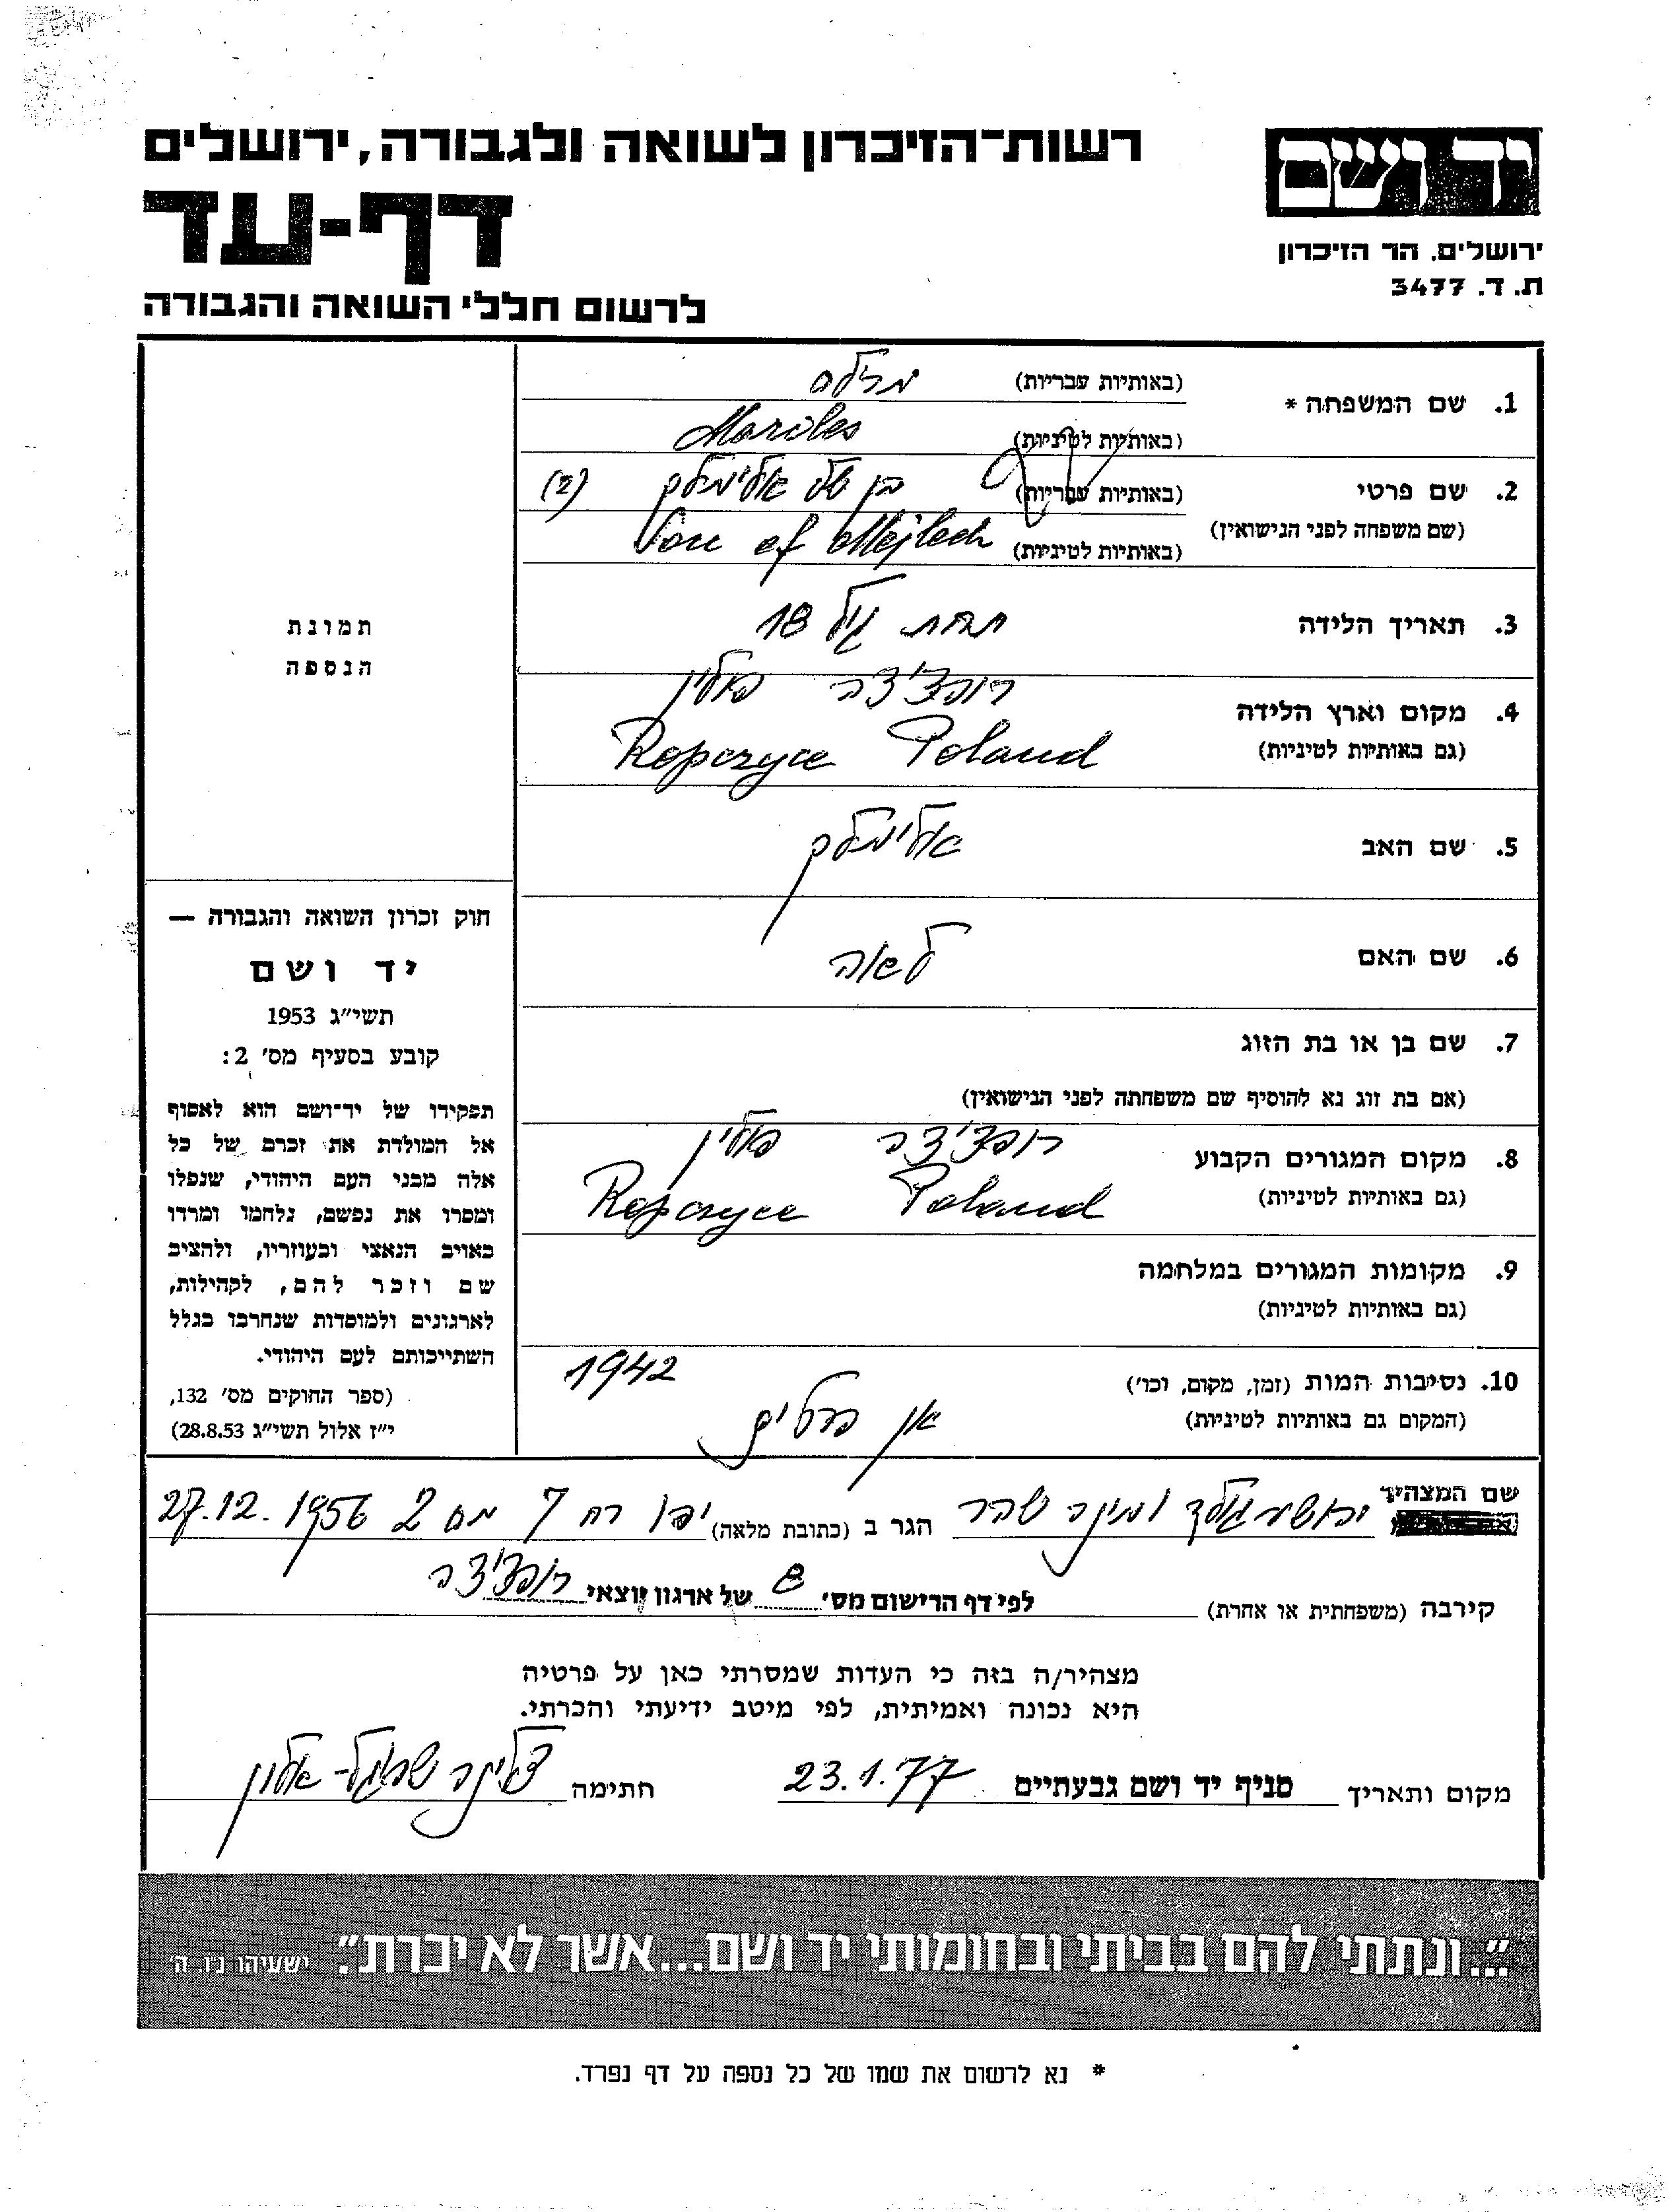 רשות־הזיכרון לשואה ולגבורה, ירושלים
יד ושם
דף-עד
ירושלים. הר הזיכרון
ת. ד. 3477
לרשום חללי השואה והגבורה
1. שם המשפחה *
(באותיות עבריות) מרילס
(באותיות לטיניות) Mariles
2. שם פרטי
(שם משפחה לפני הנישואין)
(באותיות עבריות) בן של אלימלך (2)
(באותיות לטיניות) Son of Mejlech
3. תאריך הלידה מתחת גיל 18
4. מקום וארץ הלידה רופצ'יצה פולין
(גם באותיות לטיניות) Ropczyce Poland
5. שם האב אלימלך
6. שם האם לאה
7. שם בן או בת הזוג
(אם בת זוג נא להוסיף שם משפחתה לפני הנישואין)
8. מקום המגורים הקבוע רופצ'יצה פולין
(גם באותיות לטיניות) Ropczyce Poland
9. מקומות המגורים במלחמה
(גם באותיות לטיניות)
10. נסיבות המות (זמן, מקום, וכו') 1942
(המקום גם באותיות לטיניות) אין פרטים
תמונת
הנספה
חוק זכרון השואה והגבורה —
יד ושם
תשי״ג 1953
קובע בסעיף מס' 2:
תפקידו של יד־ושם הוא לאסוף
אל המולדת את זכרם של כל
אלה מבני העם היהודי, שנפלו
ומסרו את נפשם, נלחמו ומרדו
באויב הנאצי ובעוזריו, ולהציב
שם וזכר להם, לקהילות,
לארגונים ולמוסדות שנחרבו בגלל
השתייכותם לעם היהודי.
(ספר החוקים מס' 132,
י״ז אלול תשי״ג 28.8.53)
שם המצהיר ומינה שהר הגר ב (כתובת מלאה) יפו רח 7 מס 2 27.12.1956
קירבה (משפחתית או אחרת) לפי דף הרישום מס' 8 של ארגון יוצאי רופצ'יצה
מצהיר/ה בזה כי העדות שמסרתי כאן על פרטיה
היא נכונה ואמיתית, לפי מיטב ידיעתי והכרתי.
מקום ותאריך סניף יד ושם גבעתיים 23.1.77 חתימה
״...ונתתי להם בביתי ובחומותי יד ושם...אשר לא יכרת״. ישעיהו נ״ו. ה'
* נא לרשום את שמו של כל נספה על דף נפרד.